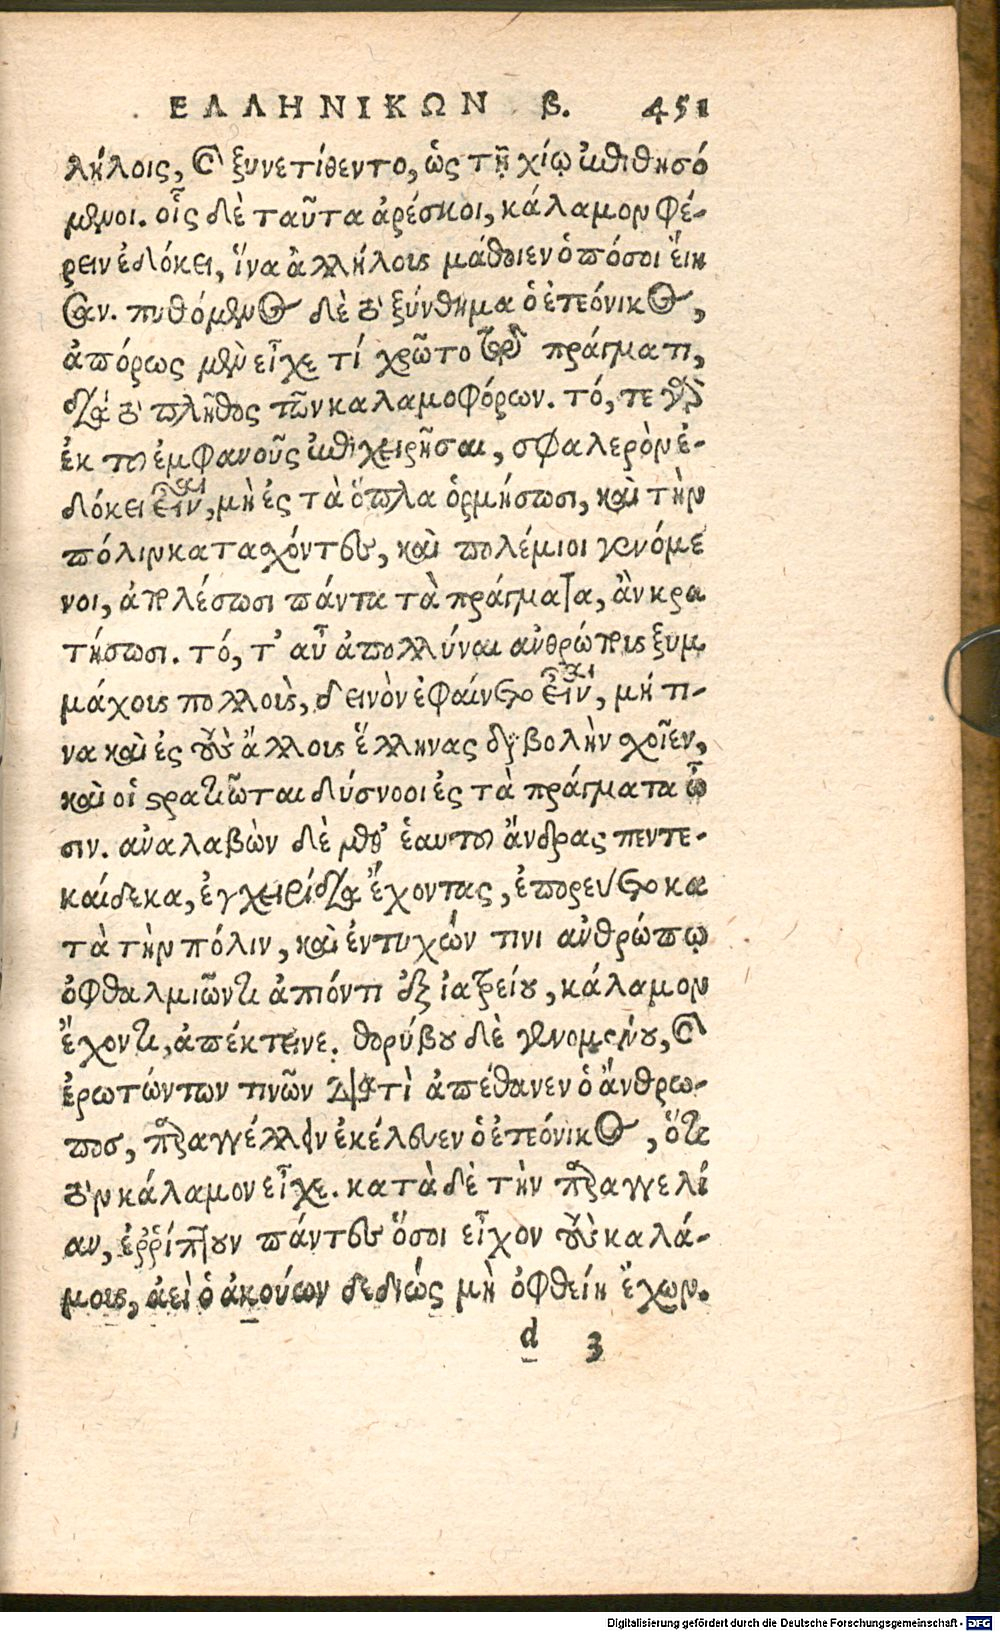 ΕΛΛΗΝΙΚΩΝ β. 451
λήλοις, καὶ ξυνετίθεντο, ὡς τῇ χίῳ ἐπιθησό
μενοι. οἷς δὲ ταῦτα ἀρέσκοι, κάλαμον φέ-
ρειν ἐδόκει, ἵνα ἀλλήλους μάθοιεν ὁπόσοι εἴη
σαν. πυθόμενος δὲ τὸ ξύνθημα ὁ ἐτεόνικος,
ἀπόρως μὲν εἶχε τί χρῷτο τῷ πράγματι,
διὰ τὸ πλῆθος τῶν καλαμοφόρων. τό, τε γὰρ
ἐκ τοῦ ἐμφανοῦς ἐπιχειρῆσαι, σφαλερὸν ἐ-
δόκει εἶναι, μὴ ἐς τὰ ὅπλα ὁρμήσωσι, καὶ τὴν
πόλιν κατασχόντες, καὶ πολέμιοι γενόμε
νοι, ἀπολέσωσι πάντα τὰ πράγματα, ἂν κρα
τήσωσι. τό, τ' αὖ ἀπολλύναι ἀνθρώπους ξυμ
μάχους πολλοὺς, δεινὸν ἐφαίνετο εἶναι, μή τι-
να καὶ ἐς τοὺς ἄλλους ἕλληνας διαβολὴν σχοῖεν,
καὶ οἱ στρατιῶται δύσνοοι ἐς τὰ πράγματα ὦ
σιν. ἀναλαβὼν δὲ μεθ' ἑαυτοῦ ἄνδρας πεντε-
καίδεκα, ἐγχειρίδια ἔχοντας, ἐπορεύετο κα
τὰ τὴν πόλιν, καὶ ἐντυχών τινι ἀνθρώπῳ
ὀφθαλμιῶντι ἀπιόντι ἐξ ἰατρείου, κάλαμον
ἔχοντι, ἀπέκτεινε. θορύβου δὲ γενομένου, καὶ
ἐρωτώντων τινῶν διατὶ ἀπέθανεν ὁ ἄνθρω-
πος, παραγγέλλειν ἐκέλευεν ὁ ἐτεόνικος, ὅτι
τὸν κάλαμον εἶχε. κατὰ δὲ τὴν παραγγελί
αν, ἐῤῥίπτουν πάντες ὅσοι εἶχον τοὺς καλά-
μους, ἀεὶ ὁ ἀκούων δεδιώς μὴ ὀφθείη ἔχων.
d 3
Digitalisierung gefördert durch die Deutsche Forschungsgemeinschaft - DFG